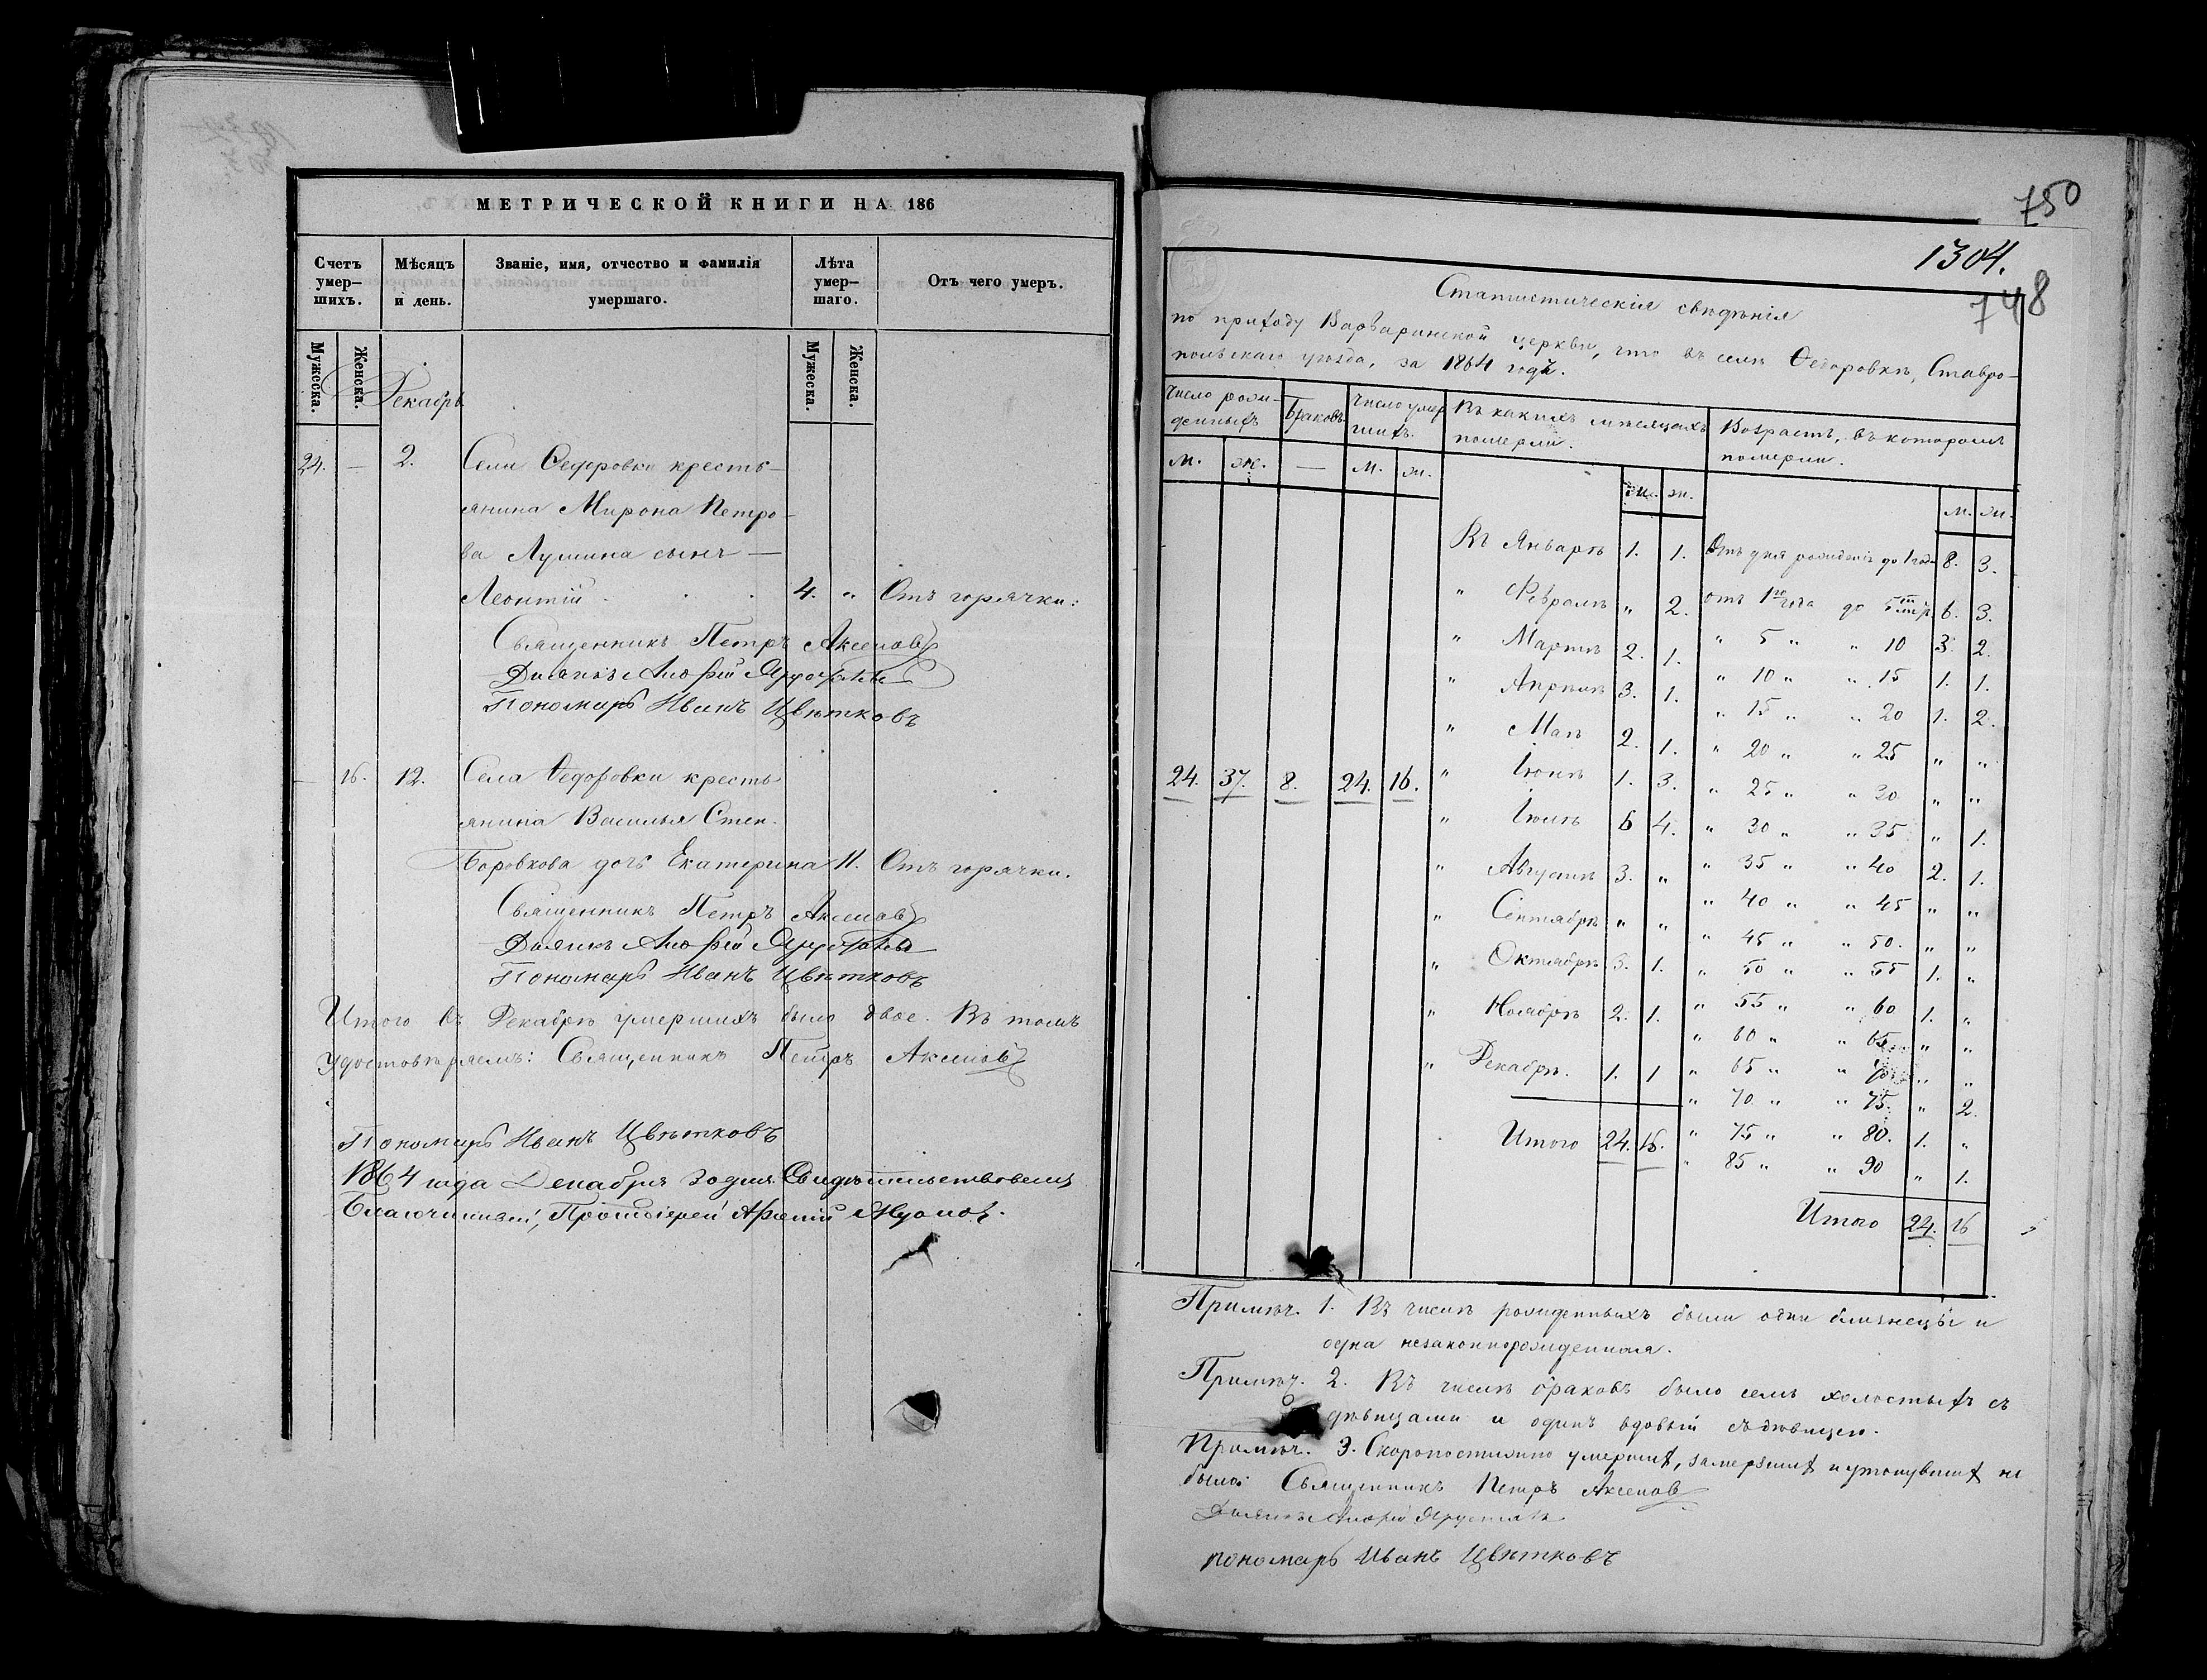 МЕТРИЧЕСКОЙ КНИГИ НА 186
Счетъ умер-шихъ. Мѣсяцъ и день. Званіе, имя, отчество и фамилія умершаго. Лѣта умер-шаго. Отъ чего умер.
Мужеска. Женска. Мужеска. Женска.
Декабрь
24. — 2. Села Ѳедоровки кресть-
янина Мирона Петро-
ва Лушина сынъ —
Леонтій . . . 4. „ Отъ горячки.
Священникъ Петръ Аксеновъ
Дьячекъ
Пономарь Иванъ Цвѣтковъ
— 16. 12. Села Ѳедоровки кресть
янина Василья Степ.
Боровкова дочь Екатерина 11. Отъ горячки.
Священникъ Петръ Аксеновъ
Дьячекъ
Пономарь Иванъ Цвѣтковъ
Итого въ Декабрѣ умершихъ было двое. Въ томъ
удостовѣряемъ: Священникъ Петръ Аксеновъ
Пономарь Иванъ Цвѣтковъ
1864 года Декабря 30 дня Свидѣтельствовалъ
Благочинный, Протоіерей
750
1304.
748
Статистическія свѣдѣнія
по приходу Варваринской церкви, что въ селѣ Ѳедоровкѣ, Ставро-
польскаго уѣзда, за 1864 годъ.
Число рож-денныхъ Браковъ. Число умер шихъ. Въ какихъ мѣсяцахъ померли. Возрастъ, въ которомъ померли.
м. ж. — м. ж. м. ж. м. ж.
Въ Январѣ 1. 1. Отъ дня рожденія до 1 года 8. 3.
„ Февралѣ „ 2. отъ 1го года до 5ти лѣтъ 6. 3.
„ Мартѣ 2. 1. „ 5 „ „ 10 3. 2.
„ Апрѣлѣ 3. 1. „ 10 „ „ 15 1. 1.
„ 15 „ „ 20 1. 2.
„ Маѣ 2. 1. „ 20 „ „ 25 „ „
24. 37. 8. 24. 16. „ Іюнѣ 1. 3. „ 25 „ „ 30 „ „
„ Іюлѣ 6 4. „ 30 „ „ 35 „ 1.
„ Августѣ 3. „ „ 35 „ „ 40 2. 1.
„ Сентябрѣ „ „ „ 40 „ „ 45 „ „
„ 45 „ „ 50. „ „
„ Октябрѣ 3. 1. „ 50 „ „ 55 1. „
„ Ноябрѣ 2. 1. „ 55 „ „ 60 1. „
„ 60 „ „ 65 „ „
„ Декабрѣ. 1. 1 „ 65 „ „ 70 „ „
„ 70 „ „ 75. „ 2.
Итого 24. 16. „ 75 „ „ 80. 1. „
„ 85 „ „ 90 „ 1.
Итого 24. 16
Примѣч. 1. Въ числѣ рожденныхъ были одни близнецы и
одна незаконнорожденная.
Примѣч. 2. Въ числѣ браковъ было семь холостыхъ съ
дѣвицами и одинъ вдовый съ дѣвицею.
Примѣч. 3. Скоропостижно умершихъ, замерзшихъ и утонувшихъ не
было: Священникъ Петръ Аксеновъ
Дьячекъ
пономарь Иванъ Цвѣтковъ